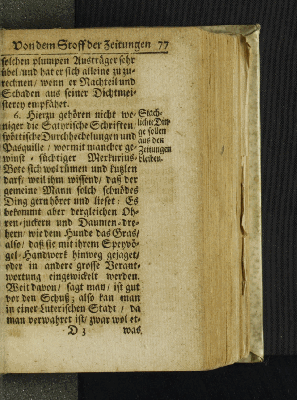 Von dem Stoff der Zeitungen 77
solchen plumpen Austräger sehr
übel/ und hat er sich alleine zuzu-
rechnen/ wenn er Nachteil und
Schaden aus seiner Dichtmei-
sterey empfähet.
6. Hierzu gehören nicht we-
niger die Satyrische Schriften/
spöttische Durchhechelungen und
Pasquille/ wormit mancher ge-
winst-süchtiger Merkurius-
Bote sich wol rümen und kutzlen
darf; weil ihm wissend/ daß der
gemeine Mann solch schnödes
Ding gern höret und lieset: Es
bekommt aber dergleichen Oh-
ren-juckern und Daumen-dre-
hern/ wie dem Hunde das Gras/
also/ daß sie mit ihrem Speyvö-
gel-Handwerk hinweg gejaget/
oder in andere grosse Verant-
wortung eingewickelt werden.
Weit davon/ sagt man/ ist gut
vor den Schuß; also kan man
in einer Luterischen Stadt/ da
man verwahret ist/ zwar wol et-
D 3 was
Stach-
lichte Din-
ge sollen
aus den
Zeitungen
bleiben.